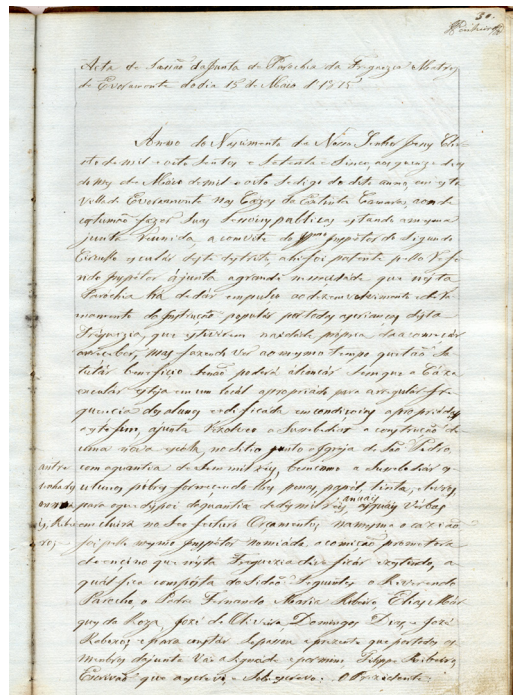 30.
Ribeiro
Acta da Sessão da Junta de Parochia da Freguezia Matriz
de Everamonte do dia 15 de Março d 1875
Anno do Nascimento de Nosso Senhor Jesus Chris-
to de mil e oito sentos e setenta e sinco, aos quinze dias
do mez de Março de mil e oito se digo do dito anno, em esta
Villa de Everamonte nas Cazas da Extinta Camara, aonde
custumão fazer suas Sençoins publicas estando a mesma
junta Reunida, a convite do Inspetor do Segundo
Circullo escular deste destrito, ahi foi patente pello Refe-
rido Inspetor á junta a grande necessidade que nesta
Parochia há de dár empulço ao dezemvolvimento e
da Instrução popular por todas as crianças desta
Freguezia, que estiverem na idade própria da a comecár
a receber, mas fazendo ver ao mesmo tempo que tão Sa-
lutár beneficio senão poderá alcançár sem que a Cáza
escular esteja em um locál apropriádo para a regulár fre-
quencia dos alunos e edificada em condiçoins apropriadas
a este fim, a junta Rezolveo a Sunsbediar a construcão de
uma nova escola, no citio junto a Igreja de São Pedro,
com a quantia de Sem mil reis, bem como a Sunsbediár os
alunos pobres fornecendo lhes penas, papél, tinta, e livros
para o que dispoi da quantia de des mil reis, anuais as quais Verbas
em cluirá no seo foturo Orçamento; na mesma o cazião
foi pello mesmo Inspetor nomiáda a comição promotora
de encino que nesta Freguezia deve ficár exestindo, a
quál fica composta dos Sidãos Seguintes o Reverendo
Parocho, o Padre Fernando Maria Ribeiro, Elias Már
ques da Roza, José de Oliveira Domingos Dias, e José
Ruberto; e para constár se passou a prezente que por todos os
membros da junta Vai asignáda e por mim, Filippe Ribeiro,
Escrivão que a escrevi e Sobescrevi. O Prezidente